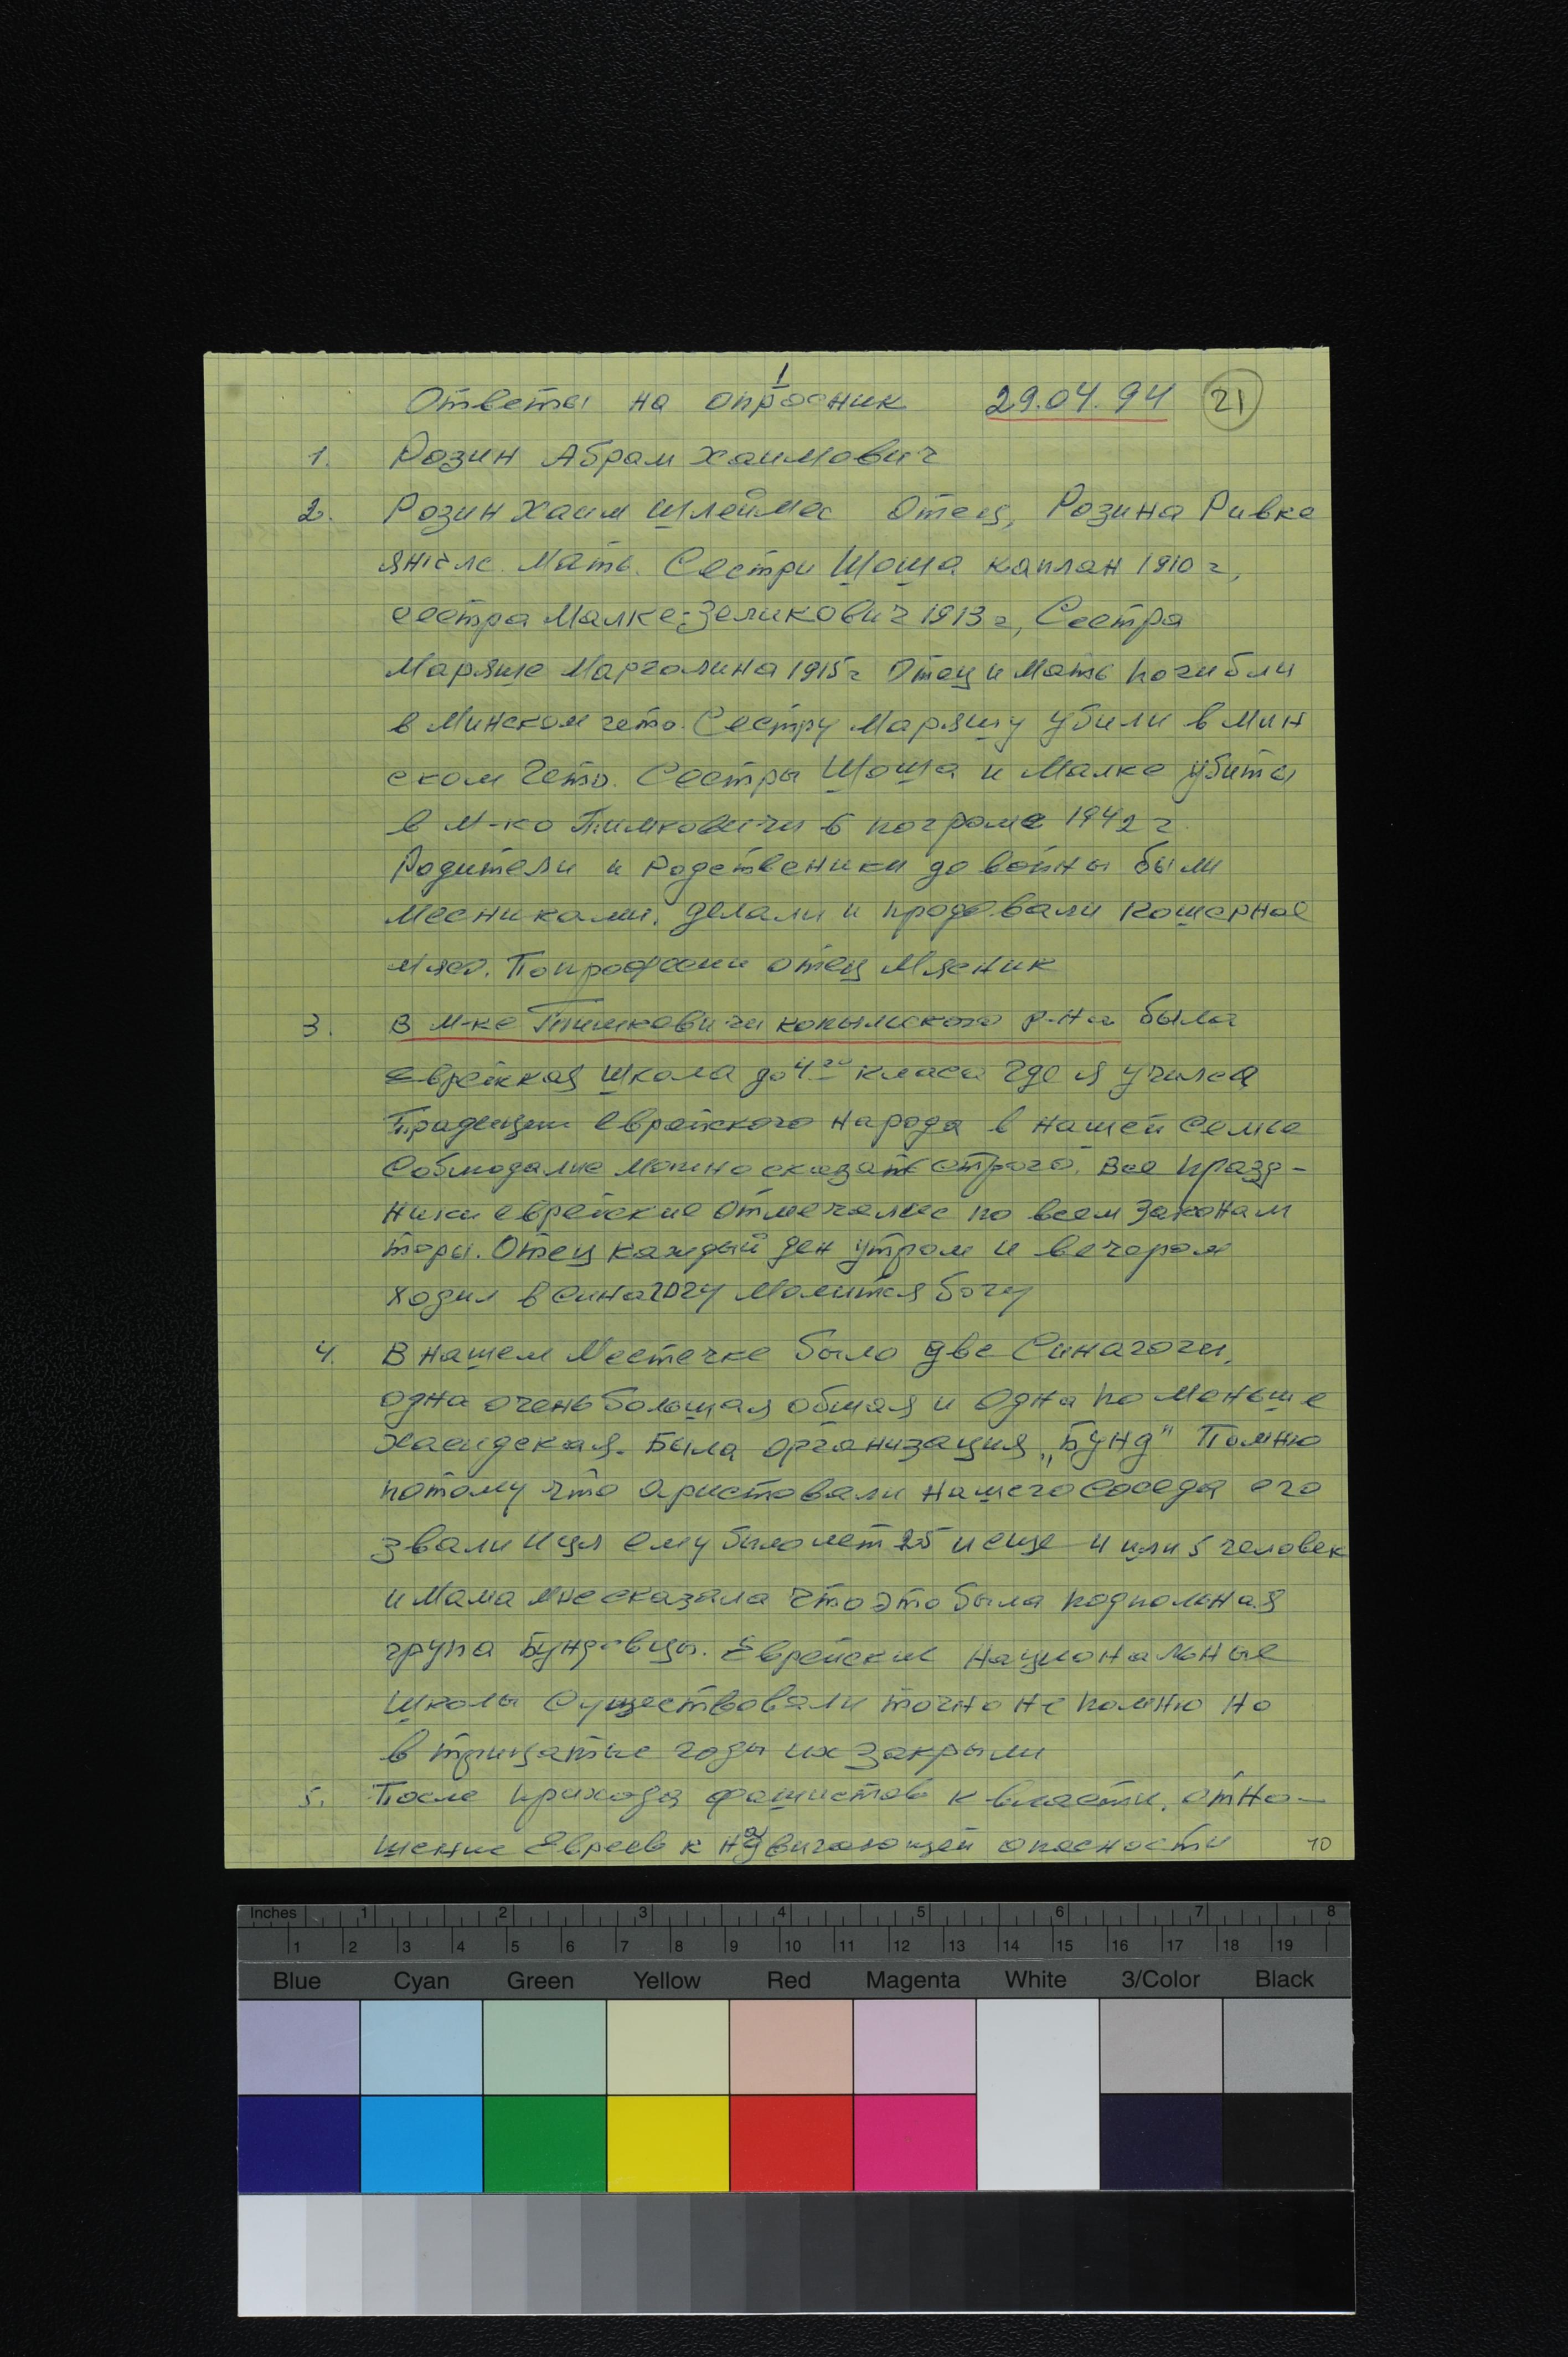 1
Ответы на опросник 29.04.94 21
1. Розин Абрам Хаимович
2. Розин Хаим Шлеймес Отец, Розина Ривке
Мать. Сестри Шоша Каплан 1910 г,
сестра Малке-Зеликович 1913 г, Сестра
Маряше Марголина 1915 г Отец и Мать погибли
в Минском гето. Сестру Маряшу убили в Мин
ском Гето. Сестры Шоша и Малке убиты
в м-ко Тимковичи в погроме 1942 г.
Родители и Родственики до войны были
Месниками. делали и продовали Кошерное
мясо. По професии отец Мясник
3. В м-ке Тимковичи копыльского р-на была
Еврейкая Школа до 4го класа где я училса
Традеции еврейского народа в нашей семье
Соблюдалие можно сказать строго. Все празд-
ники еврейские отмечалис по всем Законам
торы. Отец каждый ден утром и вечером
ходил в синагогу молится богу
4. В нашем Местечке было две Синагоги,
одна очень большая общая и одна по меньше
Хасидская. Была организация „Бунд" Помню
потому что аристовали нашего соседа его
звали Ицл ему было лет 25 и еще 4 или 5 человек
и Мама мне сказала что это была подпольная
група Бундовцы. Еврейские Национальные
школы Существовали точно не помню но
в трицатые годы их закрыли
5. После прихода фашистов к власти, отно-
шение Евреев к надвигающей опасности
10
Inches 1 2 3 4 5 6 7 8
1 2 3 4 5 6 7 8 9 10 11 12 13 14 15 16 17 18 19
Blue Cyan Green Yellow Red Magenta White 3/Color Black